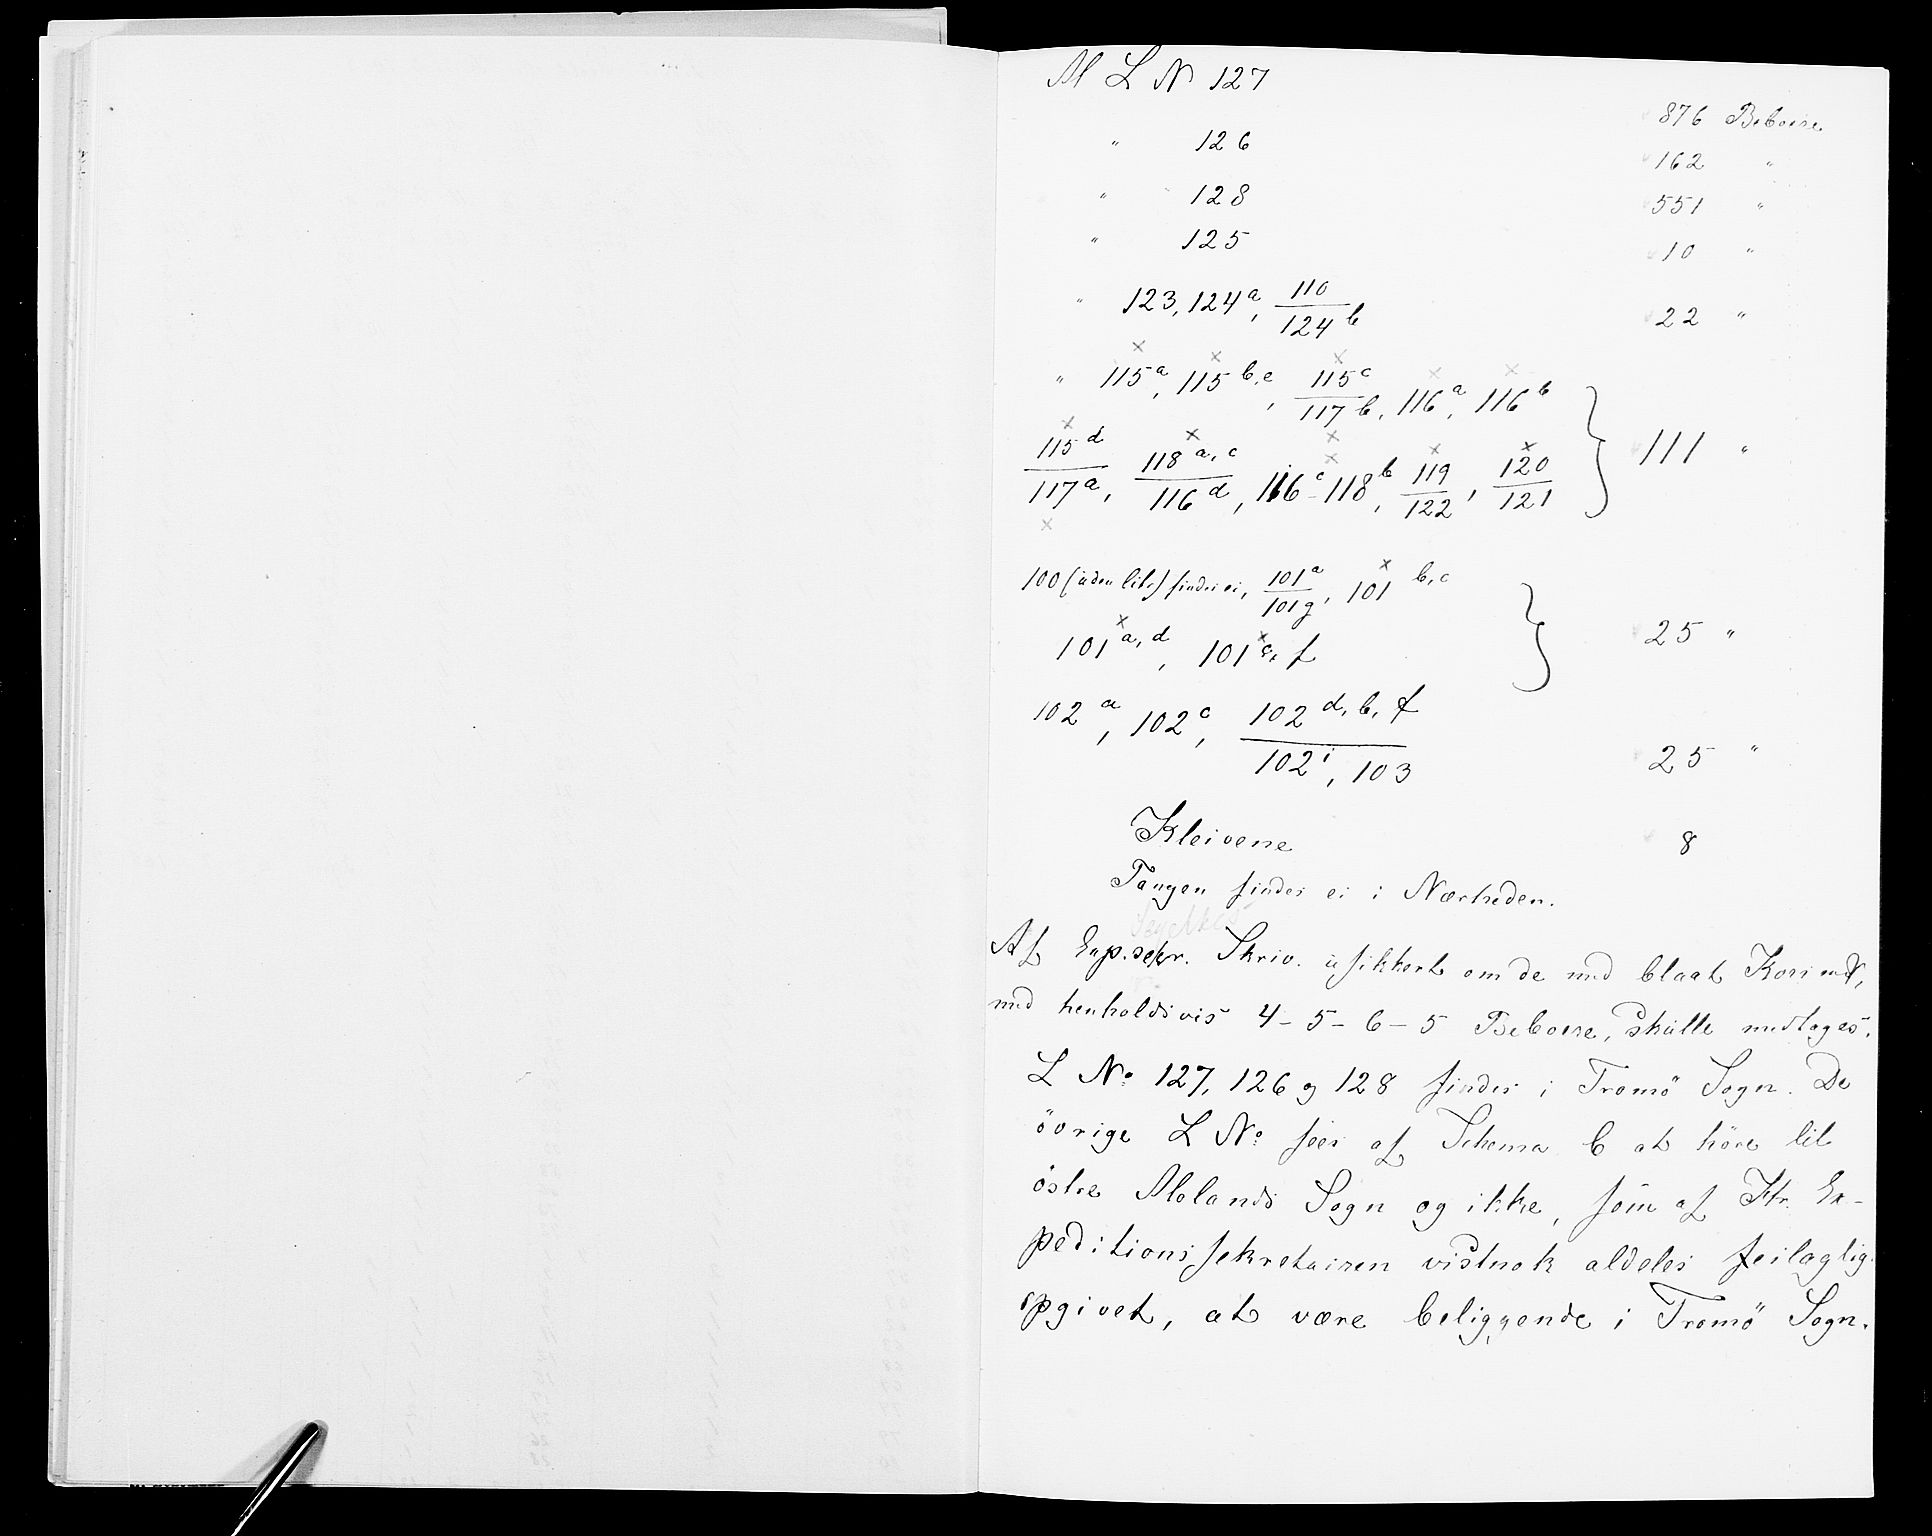 M L N 127
876 Beboere
" 126 162 "
" 128 551 "
" 125 10 "
" 123, 124a, 110/124b 22 "
" 115a, 115b,e, 115c/117b, 116a, 116b
115d/117a, 118a,c/116d, 116c-118b, 119/122, 120/121 } 111 "
100 (uden litr) findes ei, 101a/101g, 101 b,c
101a,d, 101e,f } 25 "
102a, 102c, 102d,b,f/102i, 103 25 "
Kleivene 8
Tangen findes ei i Nærheden.
Af Exp.sekr. Skriv. usikkert om de med blaat Kors mkd,
med henholdsvis 4-5-6-5 Beboere, skulle medtages.
L No 127, 126 og 128 findes i Tromö Sogn. De
övrige L No sees af Schema 6 at höre til
östre Molands Sogn og ikke, som af Hr. Ex-
peditionssekretairen vistnok aldeles feilagtig
opgivet, at være beliggende i Tromö Sogn.